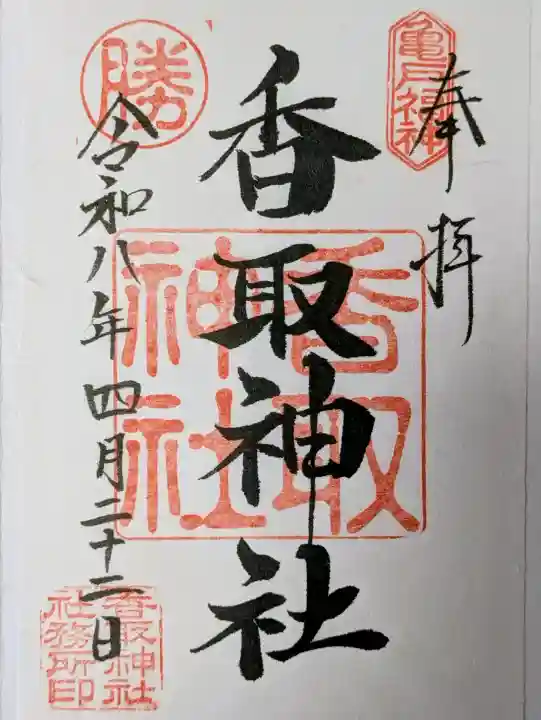 奉拝
亀戸福神
香取神社
香取神社
勝
令和八年四月二十二日
香取神社
社務所印